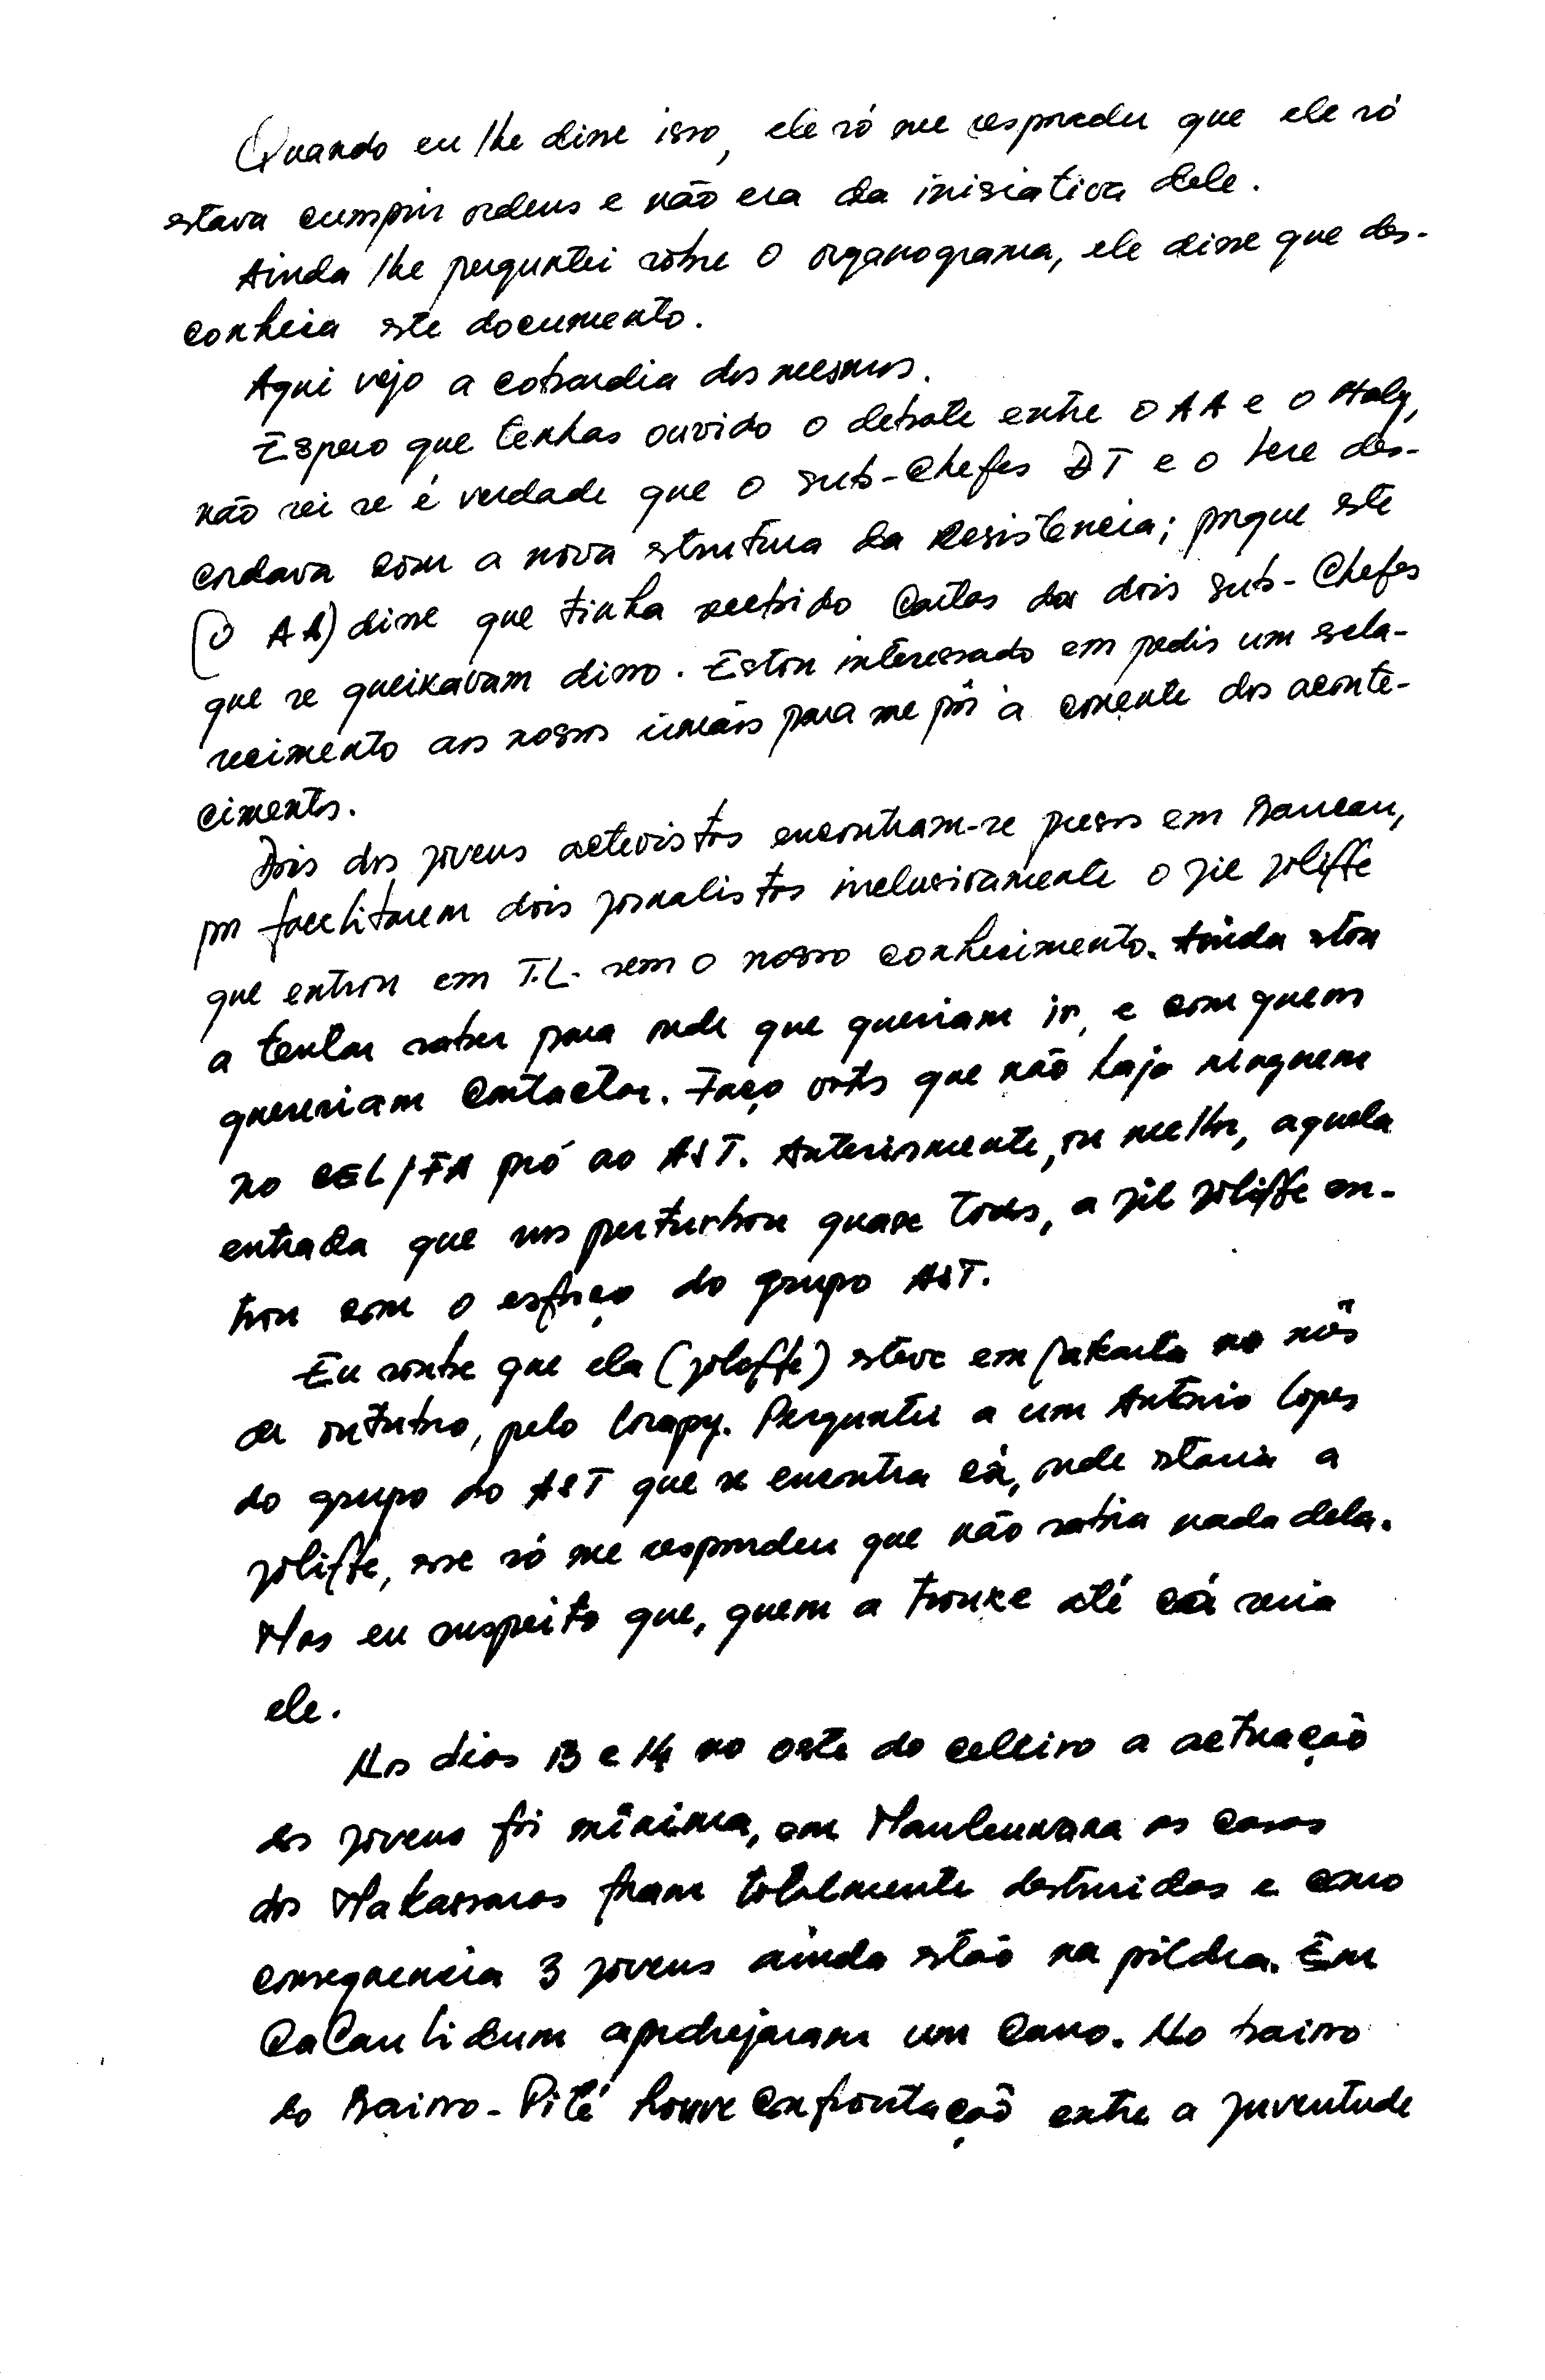 Quando eu lhe disse isso, ele só me respondeu que ele só
estava cumprir ordens e não era da inisiativa dele.
Ainda lhe perguntei sobre o organograma, ele disse que des-
conhecia este documento.
Aqui vejo a cobardia dos mesmos.
Espero que tenhas ouvido o debate entre o AA e o
não sei se é verdade que o sub-chefes DT e o Rere des-
cordava com a nova strutura da Resistencia; porque este
(o AA) disse que tinha recebido Cartas dos dois Sub-Chefes
que se queixavam disso. Estou interessado em pedir um scla-
recimento aos nossos irmãos para me pôr à corrente dos aconte-
cimentos.
Dois dos jovens actevistas encontram-se presos em Baucau,
por facelitarem dois jornalistas inclusivamente o Jil Joliffe
que entrou em T.L. sem o nosso conhecimento. Ainda stou
a tentar saber para onde que queriam ir, e com quem
quereriam Contactar. Faço votos que não haja ninguem
no CEL/FA pró ao AST. Anteriormente, ou melhor, aquela
entrada que nos perturbou quase todos, a Jil Joliffe en-
trou com o esforço do grupo AST.
Eu soube que ela (Joleffe) steve em Jakarta no mês
de outubro, pelo Perguntei a um António Lopes
do grupo do AST que se encontra cá, onde staria a
Joliffe, esse só me respondeu que não sabia nada dela.
Mas eu suspeito que, quem a trouxe até cá seria
ele.
Nos dias 13 e 14 no oste do celeiro a actuação
dos jovens foi mínima, em Manleuwana as casas
dos Makassaros foram totalmente destruidas e como
consequencia 3 jovens ainda stão na pildra. Em
CaCaulidum apedrejaram um Carro. No bairro
do Bairro-Pité houve Confrontação entre a juventude